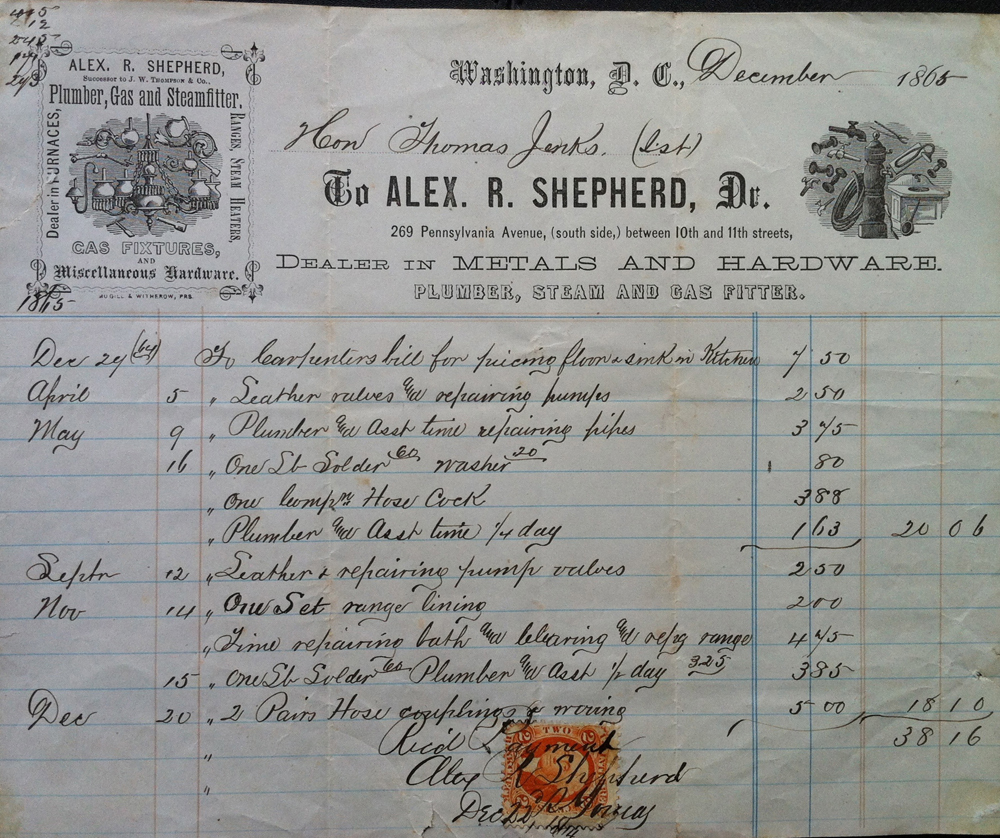 475
12
ALEX. R. SHEPHERD,
Successor to J. W. THOMPSON & Co.,
Plumber, Gas and Steamfitter.
Dealer in FURNACES,
RANGES, STEAM HEATERS,
GAS FIXTURES,
AND
Miscellaneous Hardware.
McGILL & WITHEROW, PRS.
Washington, D. C., December 1865
Hon Thomas Jenks. (1st)
To ALEX. R. SHEPHERD, Dr.
269 Pennsylvania Avenue, (south side,) between 10th and 11th streets,
DEALER IN METALS AND HARDWARE.
PLUMBER, STEAM AND GAS FITTER.
1865
Dec 29 (64) To Carpenters bill for piecing floor & sink in Kitchen 7 50
April 5 " Leather valves and repairing pumps 2 50
May 9 " Plumber and Asst time repairing pipes 3 75
16 " One Lb Solder 60 washer 20 80
" One Compn Hose Cock 3 88
" Plumber and Asst time 1/4 day 1 63 20 06
Septr 12 " Leather & repairing pump valves 2 50
Nov 14 " One Set range lining 2 00
" Time repairing bath and clearing and repg range 4 75
15 " One Lb Solder 60 Plumber and Asst 1/2 day 3 25 3 85
Dec 20 " 2 Pairs Hose couplings & wiring 5 00 18 10
" Rec'd Payment 38 16
" Alex R Shepherd
" Dec 22
TWO